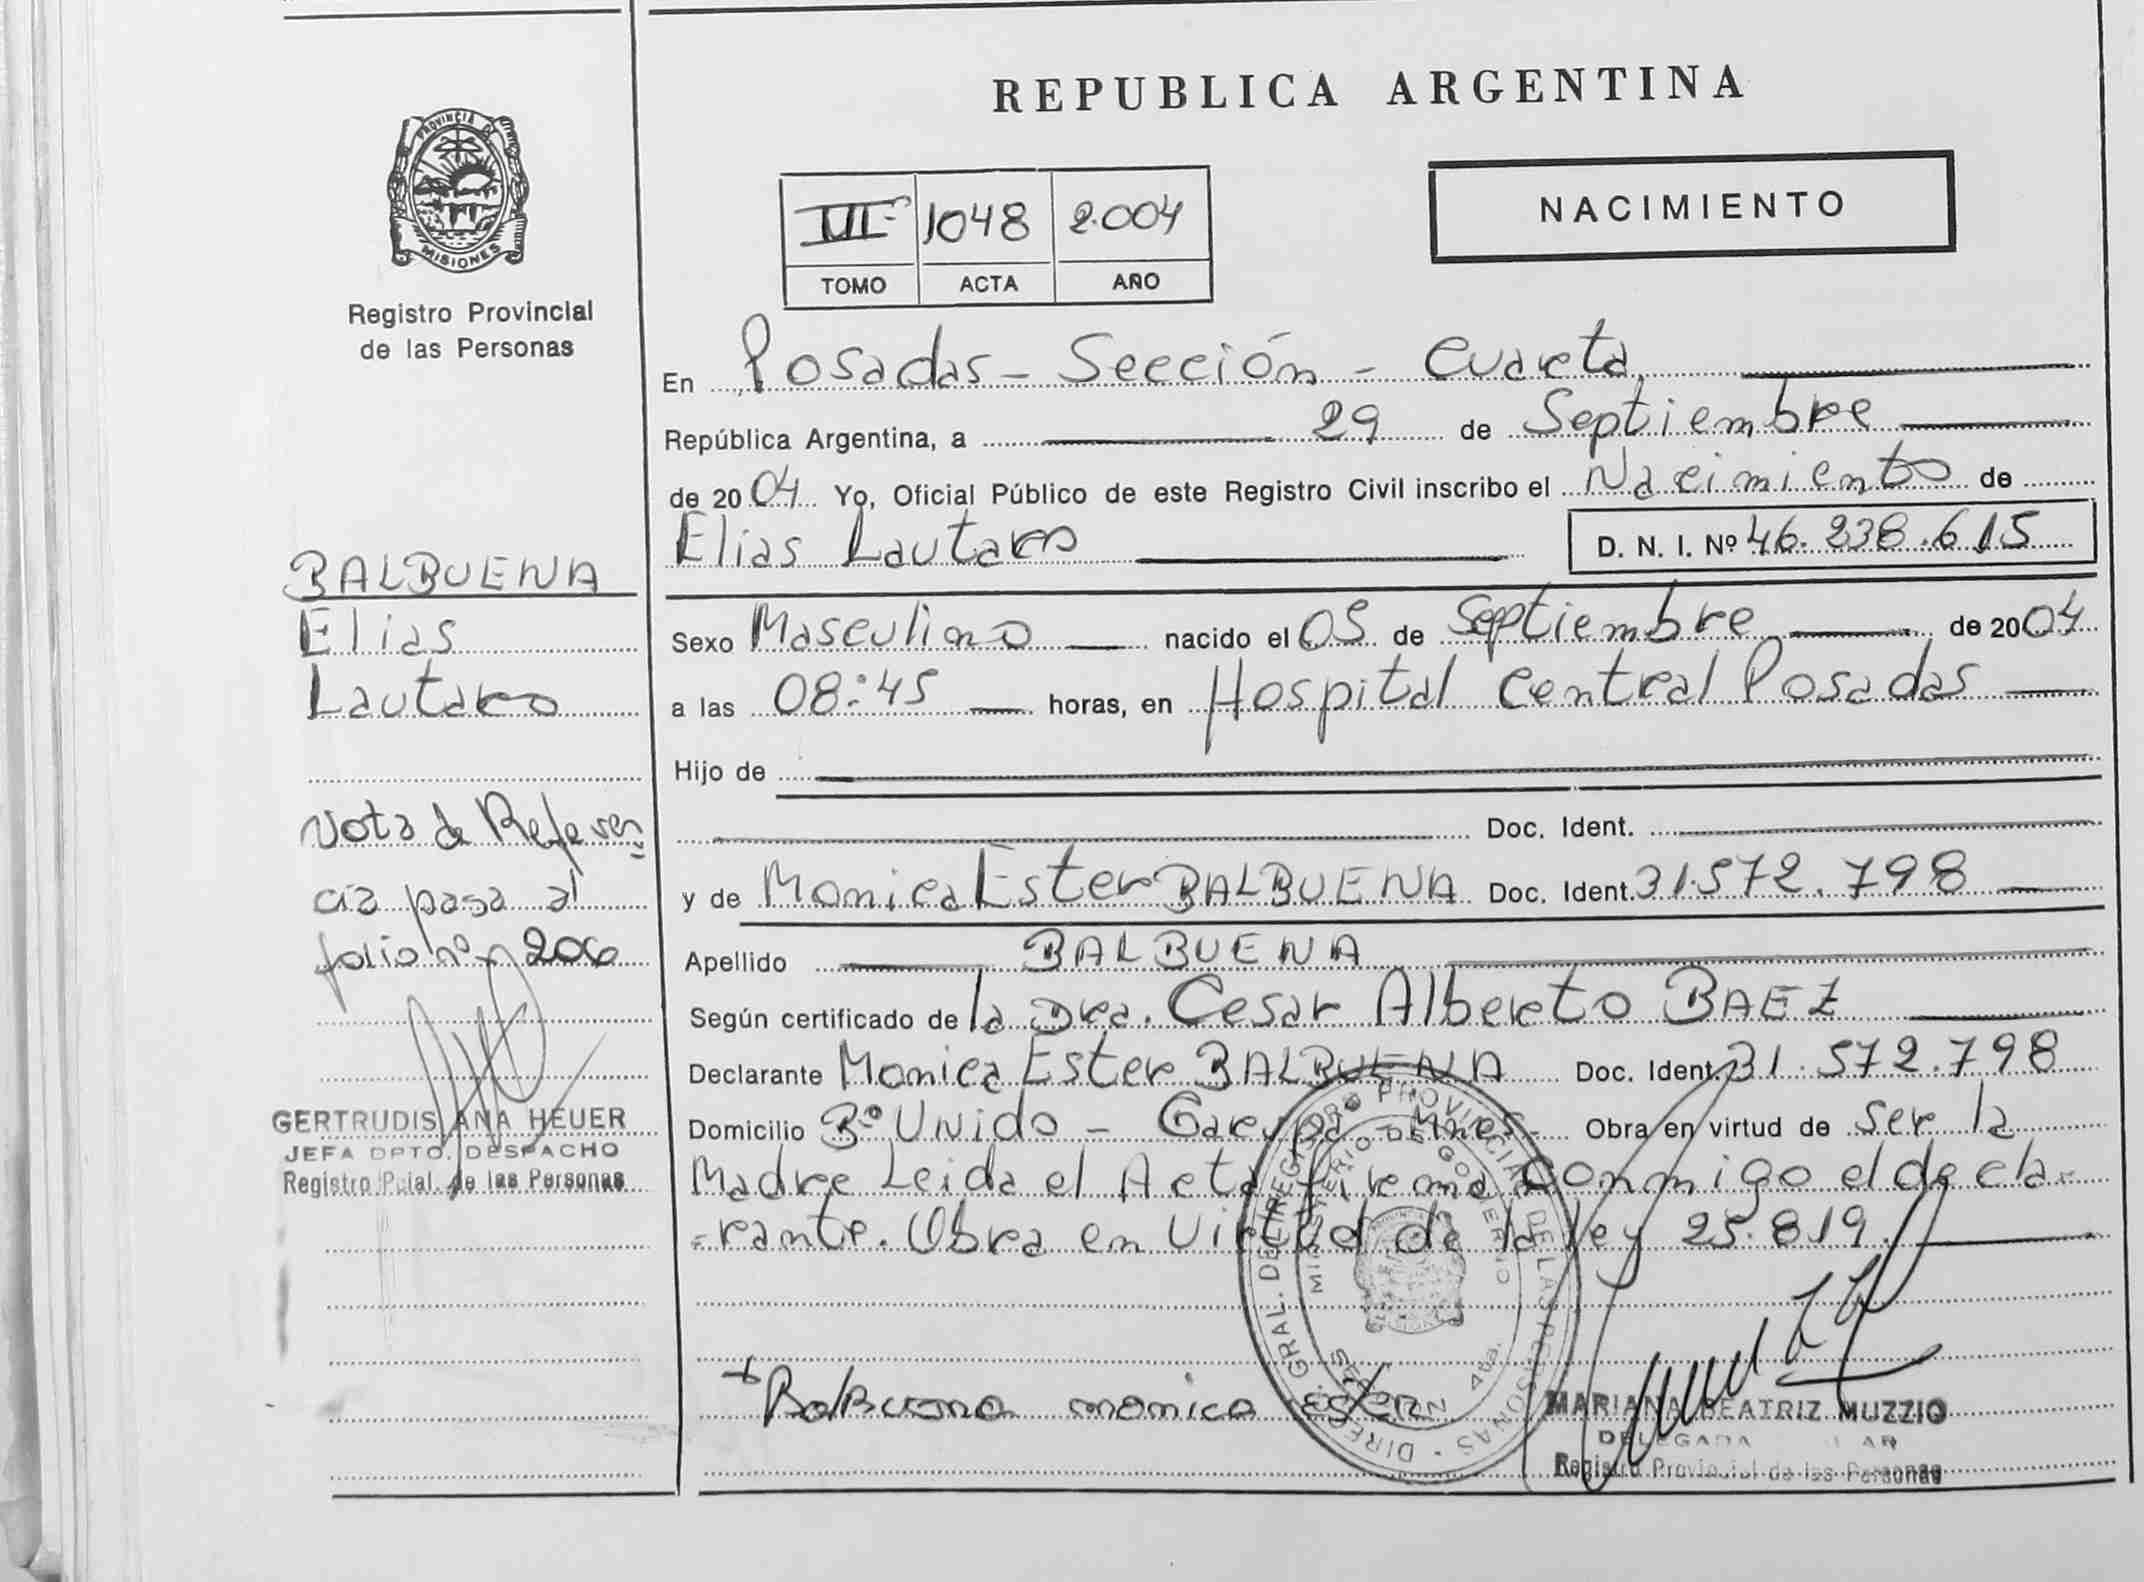 REPUBLICA ARGENTINA
PROVINCIA DE
MISIONES
Registro Provincial
de las Personas
III 1048 2.004
TOMO ACTA AÑO
NACIMIENTO
En Posadas - Sección - Cuarta
República Argentina, a 29 de Septiembre
de 2004 Yo, Oficial Público de este Registro Civil inscribo el Nacimiento de
Elias Lautaro D. N. I. Nº 46.238.615
Sexo Masculino nacido el 05 de Septiembre de 2004
a las 08:45 horas, en Hospital Central Posadas
Hijo de
Doc. Ident.
y de Monica Ester BALBUENA Doc. Ident. 31.572.798
Apellido BALBUENA
Según certificado de la Dra. Cesar Alberto BAEZ
Declarante Monica Ester BALBUENA Doc. Ident. 31.572.798
Domicilio Bº Unido - Garupá - Mnes - Obra en virtud de Ser la
Madre Leida el Acta firma conmigo el decla-
-rante. Obra en virtud de la ley 25.819.
Balbuena monica ester
MARIANA BEATRIZ MUZZIO
DELEGADA
Registro Provincial de las Personas
BALBUENA
Elias
Lautaro
Nota de Referen
cia pasa al
folio nº 200
GERTRUDIS ANA HEUER
JEFA DPTO. DESPACHO
Registro Pcial. de las Personas
DIREC. GRAL. DEL REGISTRO PROVINCIAL DE LAS PERSONAS
MINISTERIO DE GOBIERNO